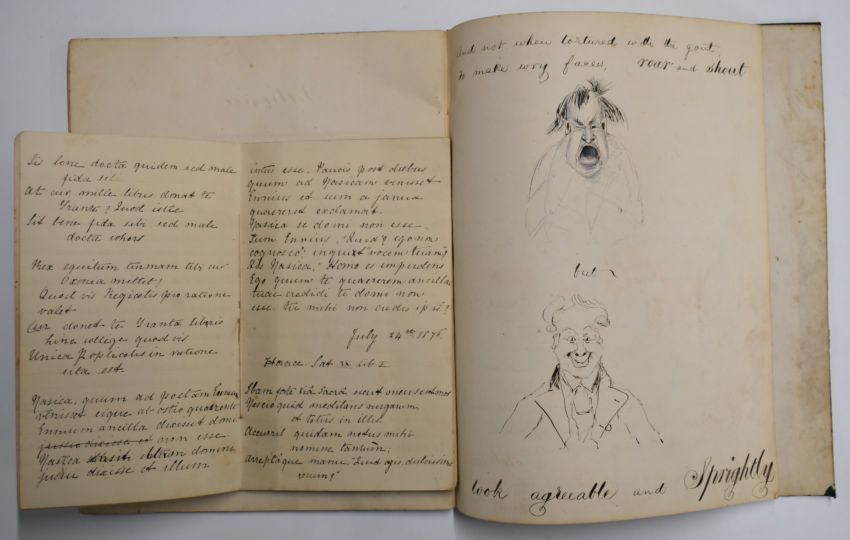 Sis bene docta quidem sed male
fida
At cur mille libris donat te
Granta? Quod istic
Sit bene fida sibi sed male
docta cohors
Rex equitum turmam tibi cur
Oxonia mittit?
Quod vis Regicolis pro ratione
valet
Cur donet te Granta libris
hinc college quod vis
Unica Populicolis in ratione
sita est.
Nasica, quum ad poetam Ennium
venisset eique ab ostio quaerenti
Ennium ancilla dixisset domi
non esse
Nasica illam domini
jussu dixisse et illum
intus esse. Paucis post diebus
quum ad Nasicam venisset
Ennius et eum a janua
quaereret exclamat
Nasica se domi non esse.
Tum Ennius, "Quid? ego non
cognosco", inquit "vocem tuam?"
Hic Nasica, "Homo es impudens
Ego quum te quaererem ancillae
tuae credidi te domi non
esse tu mihi non credis ipsi?
July 24th 1876.
Horace. Sat IX Lib I
Ibam forte Viâ Sacrâ sicut meus est mos
Nescio quid meditans nugarum
et totus in illis.
Accurrit quidam notus mihi
nomine tantum;
Arreptâque manu "Quid agis, dulcissime
rerum?"
And not when tortured with the gout,
To make wry faces, roar and shout
but
look agreeable and Sprightly